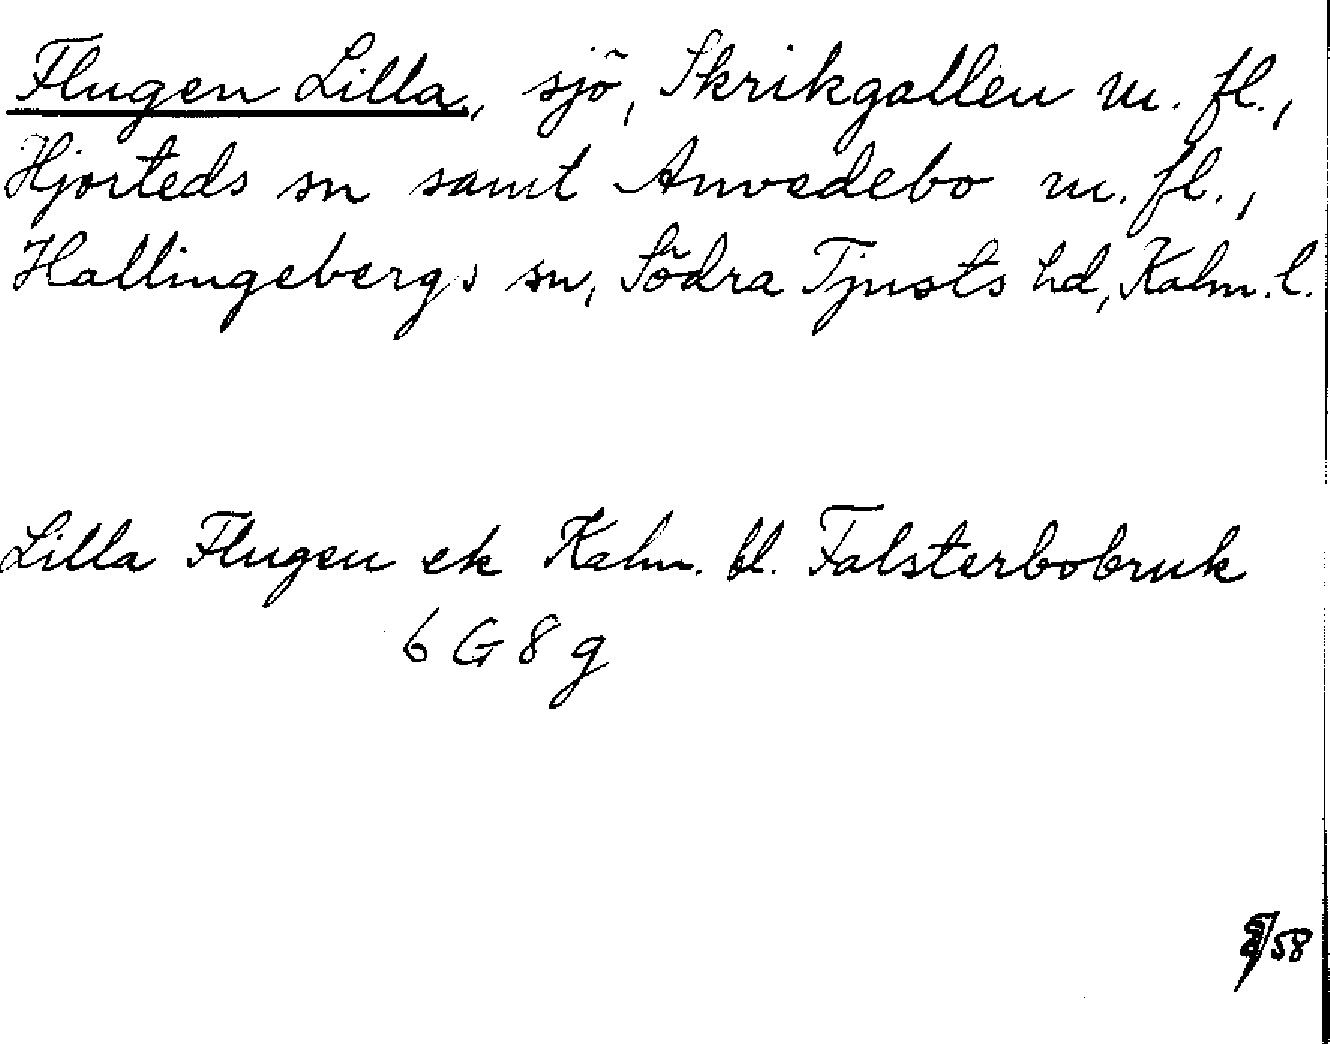 Flugen Lilla, sjö, Skrikgallen m. fl.,
Hjorteds sn samt Anvedebo m. fl.,
Hallingebergs sn, Södra Tjusts hd, Kalm. l.
Lilla Flugen ek Kalm. bl. Falsterbobruk
6 G 8 g
/58